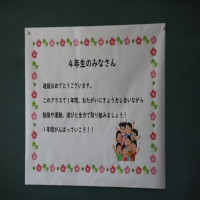 4年生のみなさん
進級おめでとうございます。
このクラスで1年間、おたがいにきょう力し合いながら
勉強や運動、遊びと全力で取り組みましょう!
1年間がんばっていこう!!